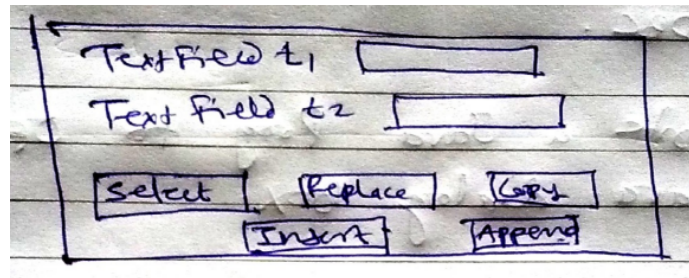 Text Field t1
Text Field t2
Select Replace Copy
Insert Append